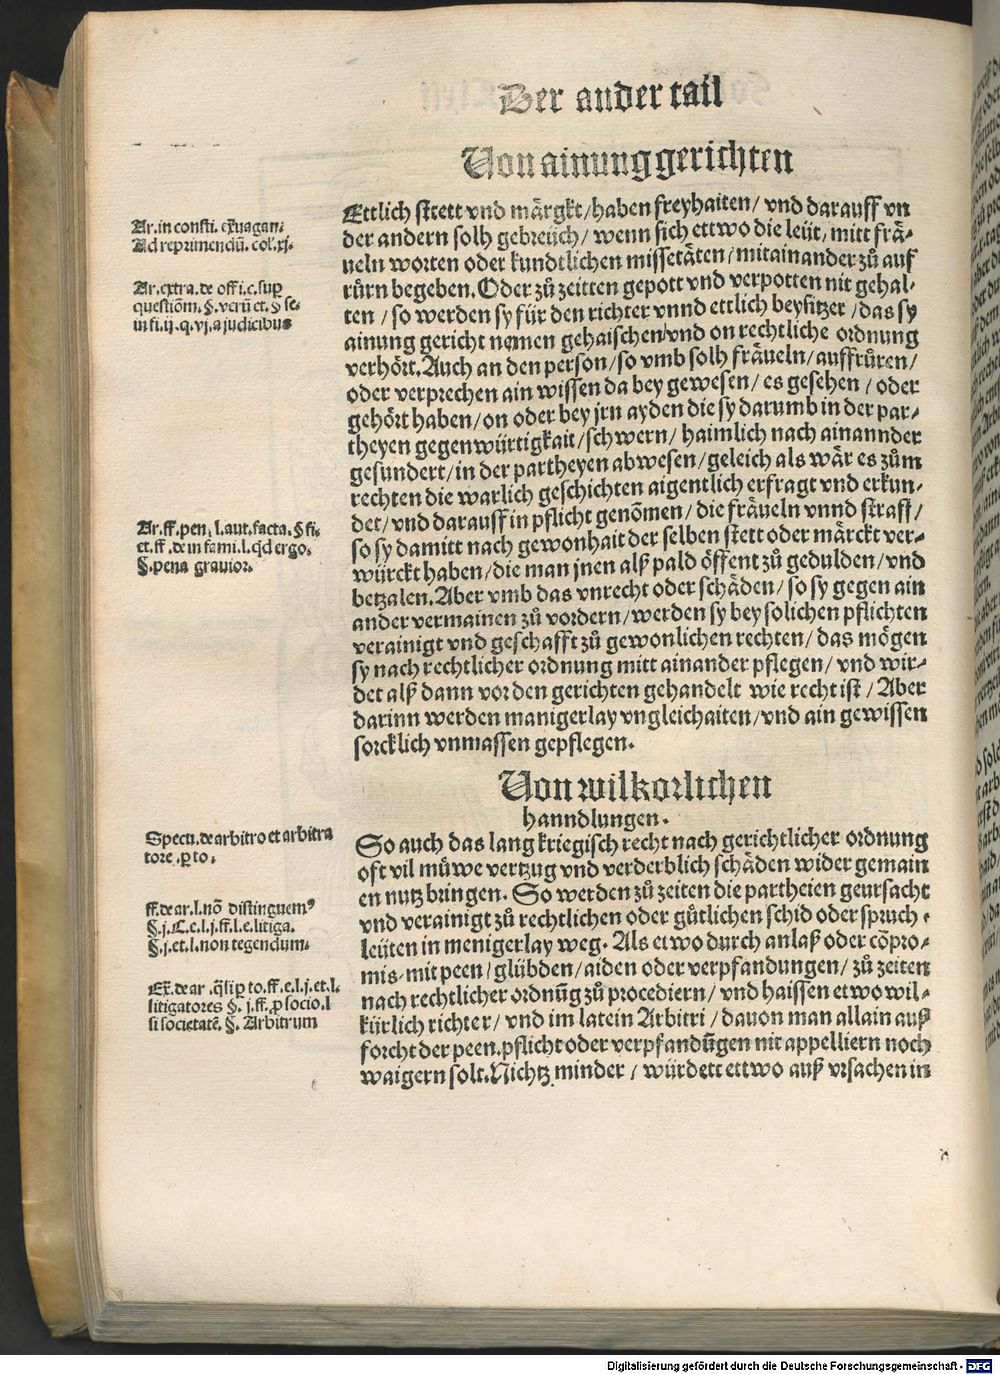 Der ander tail
Von ainung gerichten
Ettlich stett vnd märgkt/ haben freyhaiten/ vnd darauff vn
der andern solh gebreüch/ wenn sich ettwo die leüt/ mitt frä-
ueln worten oder kundtlichen missetäten/ mitainander zů auf
rürn begeben. Oder zů zeitten gepott vnd verpotten nit gehal-
ten/ so werden sy für den richter vnnd ettlich beysitzer/ das sy
ainung gericht nemen gehaischen/ vnd on rechtliche ordnung
verhört. Auch an den person/ so vmb solh fräueln/ auffrüren/
oder verprechen ain wissen da bey gewesen/ es gesehen/ oder
gehört haben/ on oder bey jrn ayden die sy darumb in der par-
theyen gegenwürtigkait/ schwern/ haimlich nach ainannder
gesundert/ in der partheyen abwesen/ geleich als wär es zům
rechten die warlich geschichten aigentlich erfragt vnd erkun-
det/ vnd darauff in pflicht genōmen/ die fräueln vnnd straff/
so sy damitt nach gewonhait der selben stett oder märckt ver-
würckt haben/ die man jnen alß pald öffent zů gedulden/ vnd
betzalen. Aber vmb das vnrecht oder schäden/ so sy gegen ain
ander vermainen zů vordern/ werden sy bey solichen pflichten
verainigt vnd geschafft zů gewonlichen rechten/ das mögen
sy nach rechtlicher ordnung mitt ainander pflegen/ vnd wir-
det alß dann vor den gerichten gehandelt wie recht ist/ Aber
darinn werden manigerlay vngleichaiten/ vnd ain gewissen
sorcklich vnmassen gepflegen.
Von wilkorlichen
hanndlungen.
So auch das lang kriegisch recht nach gerichtlicher ordnung
oft vil můwe vertzug vnd verderblich schäden wider gemain
en nutz bringen. So werden zů zeiten die partheien geursacht
vnd verainigt zů rechtlichen oder gůtlichen schid oder spruch-
leüten in menigerlay weg. Als etwo durch anlaß oder cōpro-
mis-mit peen/ glübden/ aiden oder verpfandungen/ zů zeiten
nach rechtlicher ordnūg zů procediern/ vnd haissen etwo wil-
kürlich richter/ vnd im latein Arbitri/ dauon man allain auß
forcht der peen. pflicht oder verpfandūgen nit appelliern noch
waigern solt. Nichtz minder/ würdett ettwo auß vrsachen in
Ar. in consti. ex̄uagan.
Ad reprimendū. col. xj.
Ar. extra. de offi. c. sup̱
questiōm. §. verū et. ꝫ se-
in fi. ij. q. vj. a judicibus
Ar. ff. pen. l. aut. facta. § fi.
et. ff. de in fami. l. qd ergo.
§. pena grauior.
Specu. de arbitro et arbitra
tore. ꝑ to.
ff. de ar. l. nō distinguemꝰ
§. j. C. e. l. j. ff. l. e. litiga.
§. j. et. l. non tegendum.
Ex̄. de ar. q̄lip̱ to. ff. e. l. j. et. l.
litigatores §. j. ff. ꝓ socio. l
si societatē. §. Arbitrum
Digitalisierung gefördert durch die Deutsche Forschungsgemeinschaft - DFG